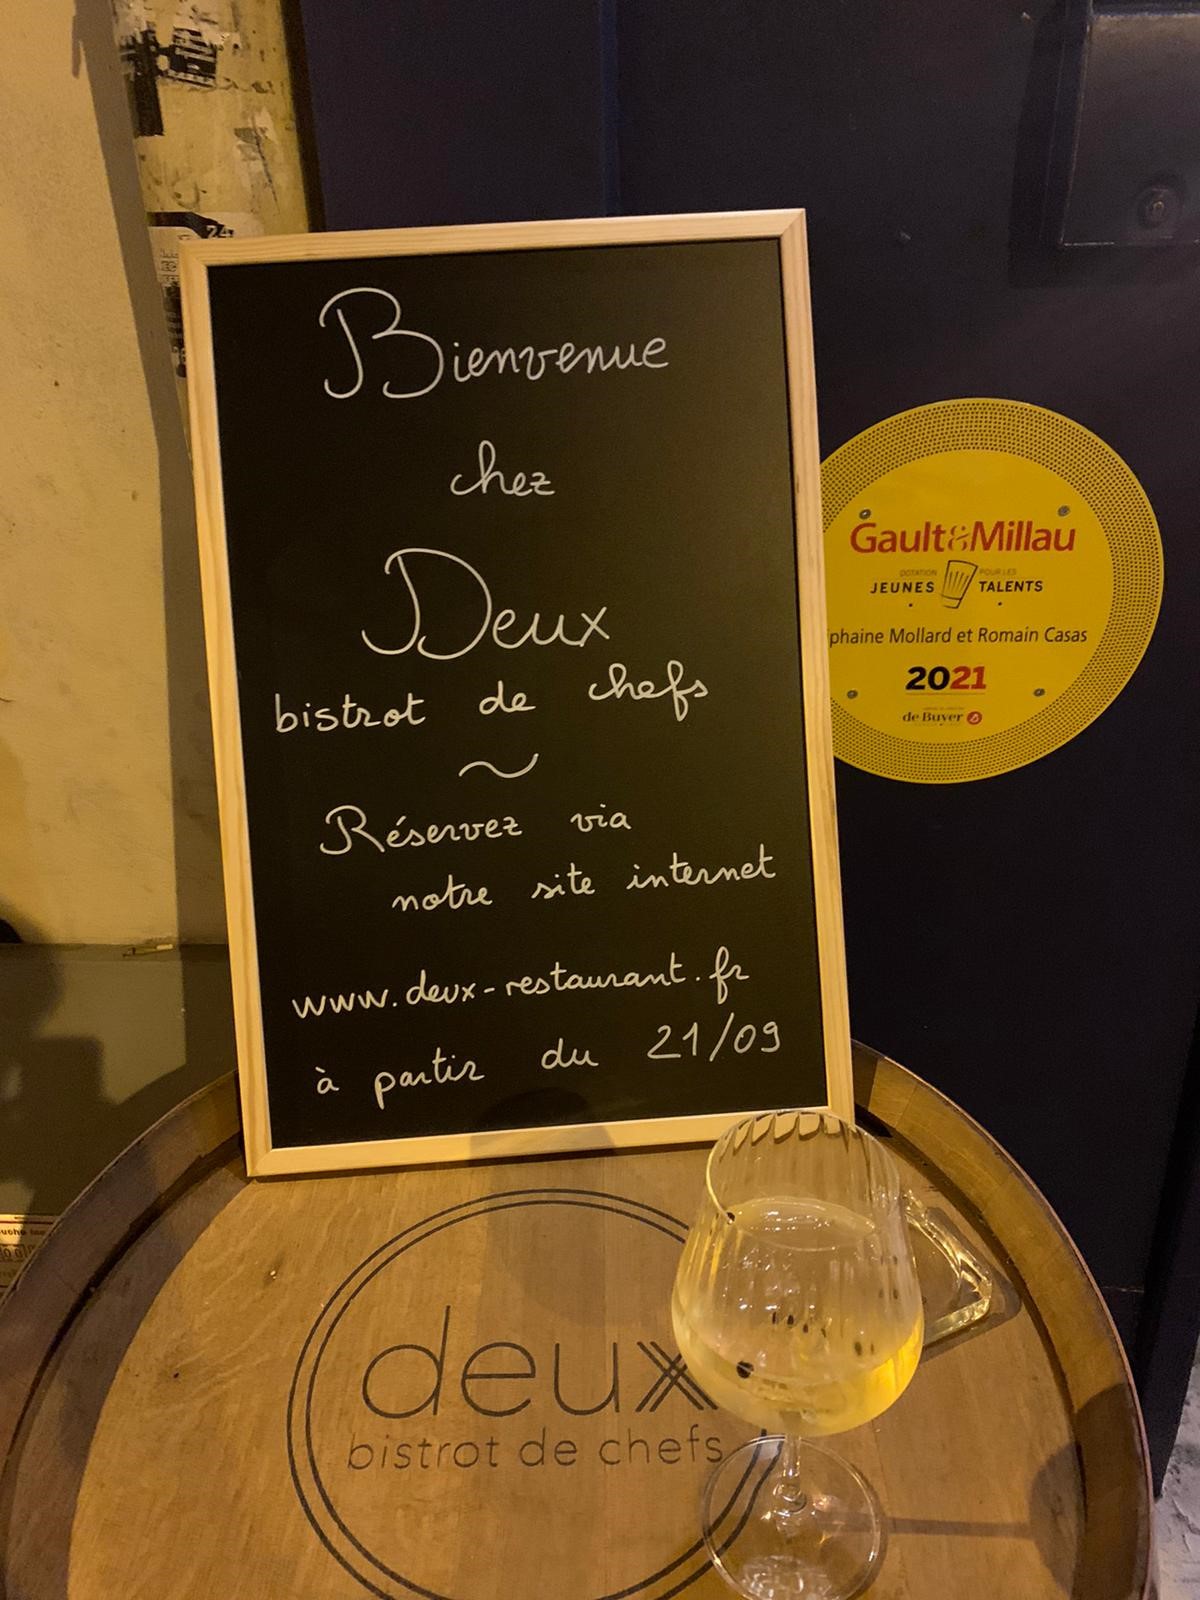 24
Bienvenue
chez
Deux
bistrot de chefs
~
Réservez via
notre site internet
www.deux-restaurant.fr
à partir du 21/09
Gault&Millau
DOTATION POUR LES
JEUNES TALENTS
phaine Mollard et Romain Casas
2021
de Buyer
deux
bistrot de chefs